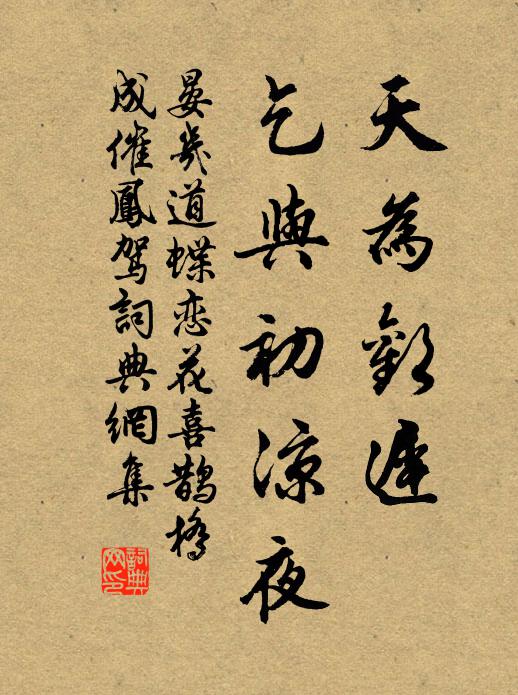 天為歡遲
乞與初涼夜
晏幾道蝶恋花喜鵲橋
成催鳳駕詞典網集
詞典网印